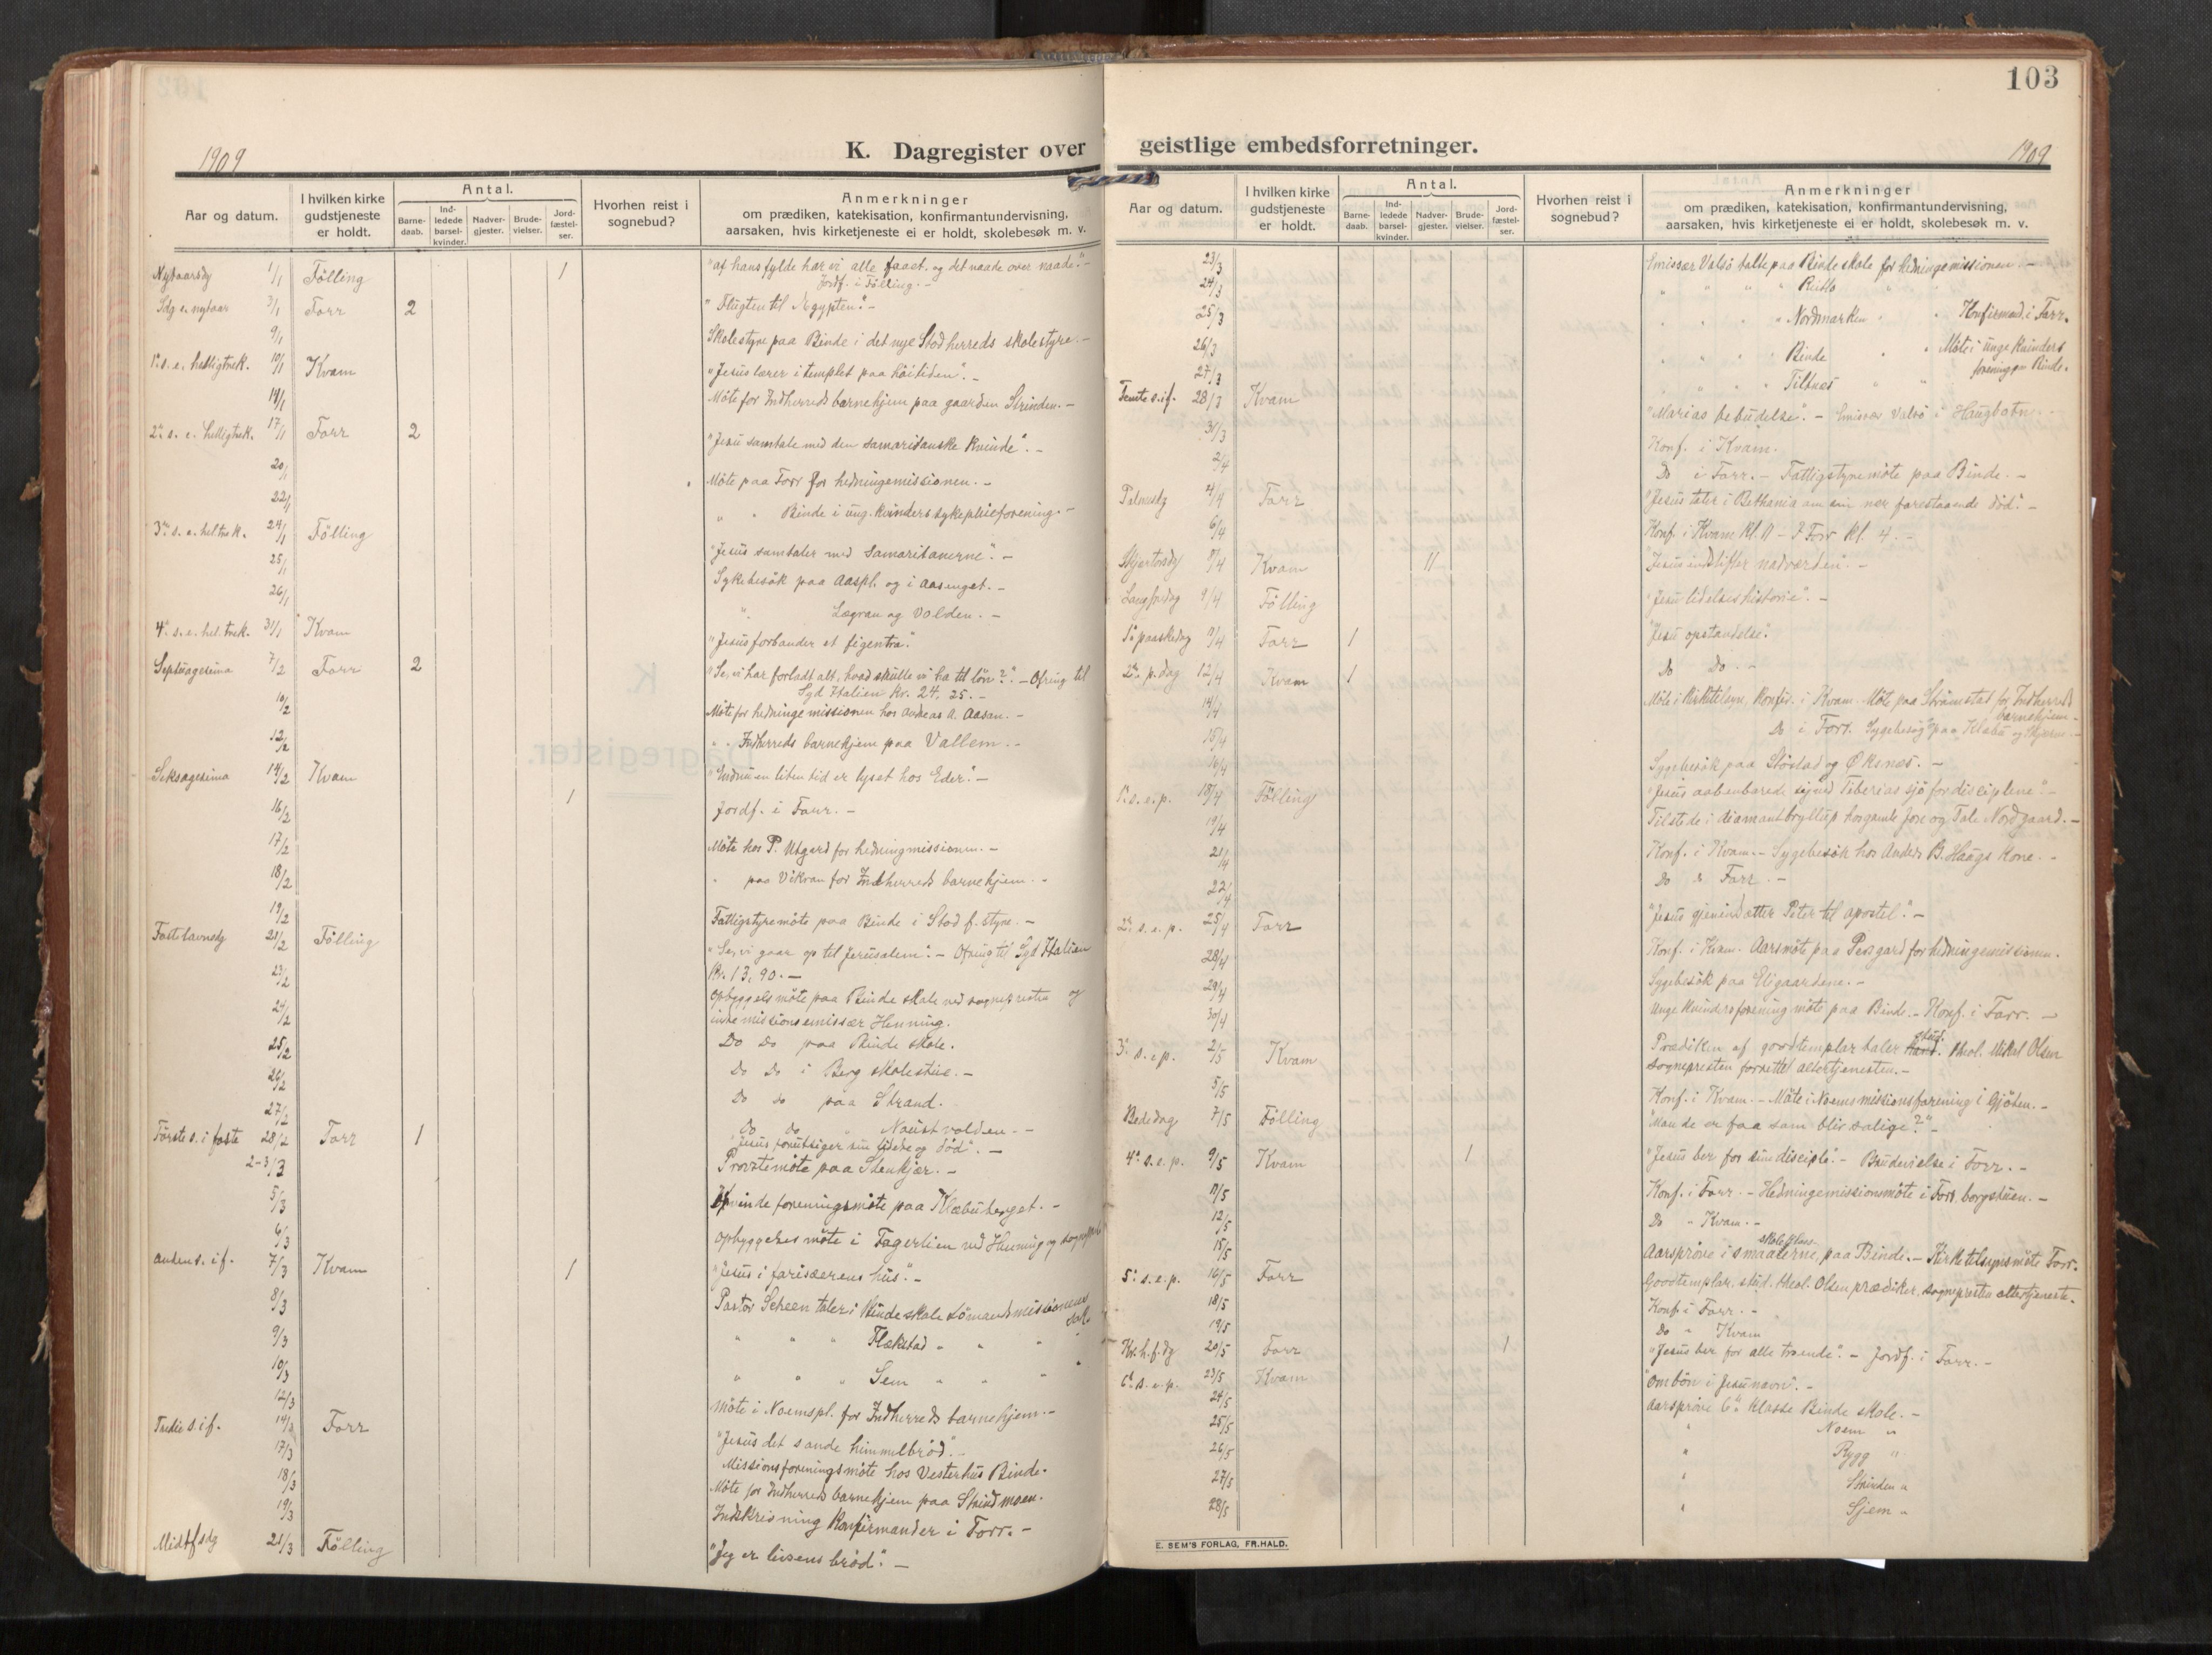 1909
K. Dagregister over
Aar og datum.
I hvilken kirke gudstjeneste er holdt.
Antal.
Barne-daab.
Ind-ledede barsel-kvinder.
Nadver-gjester.
Brude-vielser.
Jord-fæstel-ser.
Hvorhen reist i sognebud?
Anmerkninger
om prædiken, katekisation, konfirmantundervisning,
aarsaken, hvis kirketjeneste ei er holdt, skolebesøk m. v.
Nytaarsdg 1/1 Följing 1 "af hans fylde har vi alle faaet, og det naade over naade." -
Jordf. i Fölling. -
Sdg e. nytaar 3/1 Forr 2 "Flugten til Ægypten". -
9/1 Skolestyre paa Binde i det nye Stod herreds skolestyre. -
1ste s. e. helligtrek. 10/1 Kvam "Jesus lærer i templet paa höitiden". -
14/1 Möte for Indherreds barnehjem paa gaarden Strinden. -
2den s. e. helligtrek. 17/1 Forr 2 "Jesu samtale med den samaritanske kvinde". -
20/1 Möte paa Forr for hedningemissionen. -
22/1 " " Binde i ung. kvinders sykepleieforening. -
3die s. e. hel.trek. 24/1 Fölling "Jesus samtaler med Samaritanerne". -
25/1 Sykebesök paa Aaspl. og i Aasenget. -
26/1 " Lægran og Volden. -
4de s. e. hel. trek. 31/1 Kvam "Jesus forbander et figentræ."
Septuagesima 7/2 Forr 2 "Se, vi har forladt alt, hvad skulle vi ha til lön?" - Ofring til
Syd Italien kr. 24. 25. -
10/2 Möte for hedningemissionen hos Andreas A. Aasan. -
12/2 " " Indherreds barnehjem paa Vallem. -
Seksagesima 14/2 Kvam "Endnu en liten tid er lyset hos Eder." -
16/2 1 Jordf. i Forr. -
17/2 Möte hos P. Utgard for hedningmissionen. -
18/2 " paa Vikran for Indherreds barnehjem. -
19/2 Fattigstyremöte paa Binde i Stod f. styre. -
Fastelavnsdg 21/2 Fölling "Se, vi gaar op til Jerusalem". - Ofring til Syd Italien
kr. 13, 90. -
23/2 Opbyggelsmöte paa Binde skole ved sognepresten og
24/2 indremissionsemissær Henning.
25/2 Do Do paa Binde skole.
26/2 Do Do i Berg skolestue. -
27/2 Do Do paa Strand.
Do do " Naustvolden. -
Förste s. i faste 28/2 Forr 1 "Jesus forutsiger sin lidelse og död". -
2-3/3 Provstemöte paa Stenkjær. -
5/3 Kvindeforeningsmöte paa Klæbuberget. -
6/3 Opbyggelses möte i Fagerlien ved Henning og sognepr.
Anden s. i f. 7/3 Kvam 1 "Jesus i farisæerens hus". -
8/3 Pastor Scheen taler i Binde skole sömandsmissionens sak.
9/3 " " " Flækstad " " "
10/3 " " " Sem " " "
12/3 Möte i Noemspl. for Indherreds barnehjem. -
Tredie s. i f. 14/3 Forr "Jesus det sande himmelbröd". -
17/3 Missionsforeningsmöte hos Vesterhus Binde.
18/3 Möte for Indherreds barnehjem paa Strindmoen.
19/3 Indskrivning konfirmander i Forr. -
Midtfsdg 21/3 Fölling "Jeg er livsens bröd". -
103
geistlige embedsforretninger.
1909
Aar og datum.
I hvilken kirke gudstjeneste er holdt.
Antal.
Barne-daab.
Ind-ledede barsel-kvinder.
Nadver-gjester.
Brude-vielser.
Jord-fæstel-ser.
Hvorhen reist i sognebud?
Anmerkninger
om prædiken, katekisation, konfirmantundervisning,
aarsaken, hvis kirketjeneste ei er holdt, skolebesøk m. v.
23/3 Emissær Valsö talte paa Binde skole for hedningemissionen. -
24/3 " " " "
25/3 " " " " Nordmarken " " Konfirmand. i Forr.
26/3 " " " " Binde " " Möte i unge kvinders
forening paa Binde.
27/3 " " " " Tiltnes " "
Femte s. i f. 28/3 Kvam "Marias bebudelse". - Emissær Valsö i Haugbotn. -
31/3 Konf. i Kvam.
2/4 Do i Forr. - Fattigstyremöte paa Binde. -
Palmesdg 4/4 Forr "Jesus taler i Bethania om sin nær forestaaende död". -
6/4 Konf. i Kvam kl. 11 - I Forr kl. 4. -
Skjertorsdg 8/4 Kvam 11 "Jesus indstifter nadverden". -
Langfredag 9/4 Fölling "Jesu lidelseshistorie". -
1ste paaskedag 11/4 Forr 1 "Jesu opstandelse".
2den p. dag 12/4 Kvam 1 Do Do. -
14/4 Möte i kirketilsyn, konfir. i Kvam. Möte paa Strömstad for Indherreds
barnehjem. -
15/4 Do i Forr. Sygebesög paa Klæbu og Skjerve. -
16/4 Sygebesök paa Støstad og Öksnes. -
1ste s. e. p. 18/4 Fölling "Jesus aabenbarede sig ved Tiberias sjö for disciplene". -
19/4 Tilstede i diamantbryllup hos gamle Jon og Tale Nordgaard. -
21/4 Konf. i Kvam. - Sygebesök hos Anders B. Haugs kone. -
22/4 Do i Forr. -
2den s. e. p. 25/4 Forr "Jesus gjenindsætter Peter til apostel". -
28/4 Konf. i Kvam. Aarsmöte paa for hedningemissionen.
29/4 Sygebesök paa Elgaardene. -
30/4 Unge kvindersforening möte paa Binde. - Konf. i Forr. -
3die s. e. p. 2/5 Kvam Prædiken af goodtemplar taler stud. theol. Mikal Olsen
sognepresten forrettet altertjenesten. -
5/5 Konf. i Kvam. - Möte i Noems missionsforening i Gjöten. -
Bededag 7/5 Fölling "Mon de er faa som blir salige?" -
4de s. e. p. 9/5 Kvam 1 "Jesus ber for sine disciple". - Brudevielse i Forr. -
11/5 Konf. i Forr. - Hedningemissionsmöte i Forr borgstuen. -
12/5 Do " Kvam. -
15/5 Aarspröve i smaaskoleklasserne paa Binde. - Kirketilsynsmöte Forr.
5te s. e. p. 16/5 Forr Goodtemplar, stud. theol. Olsen prædiker, sognepresten altertjeneste.
18/5 Konf. i Forr. -
19/5 Do " Kvam
Kr. h. f. dg 20/5 Forr 1 "Jesus ber for alle troende". - Jordf. i Forr. -
6te s. e. p. 23/5 Kvam "Om bön i Jesu navn". -
24/5 Aarspröve 6te klasse Binde skole. -
25/5 " Noem "
26/5 " Rygg "
27/5 " Strinden "
28/5 " Gjem "
E. SEM'S FORLAG, FR.HALD.